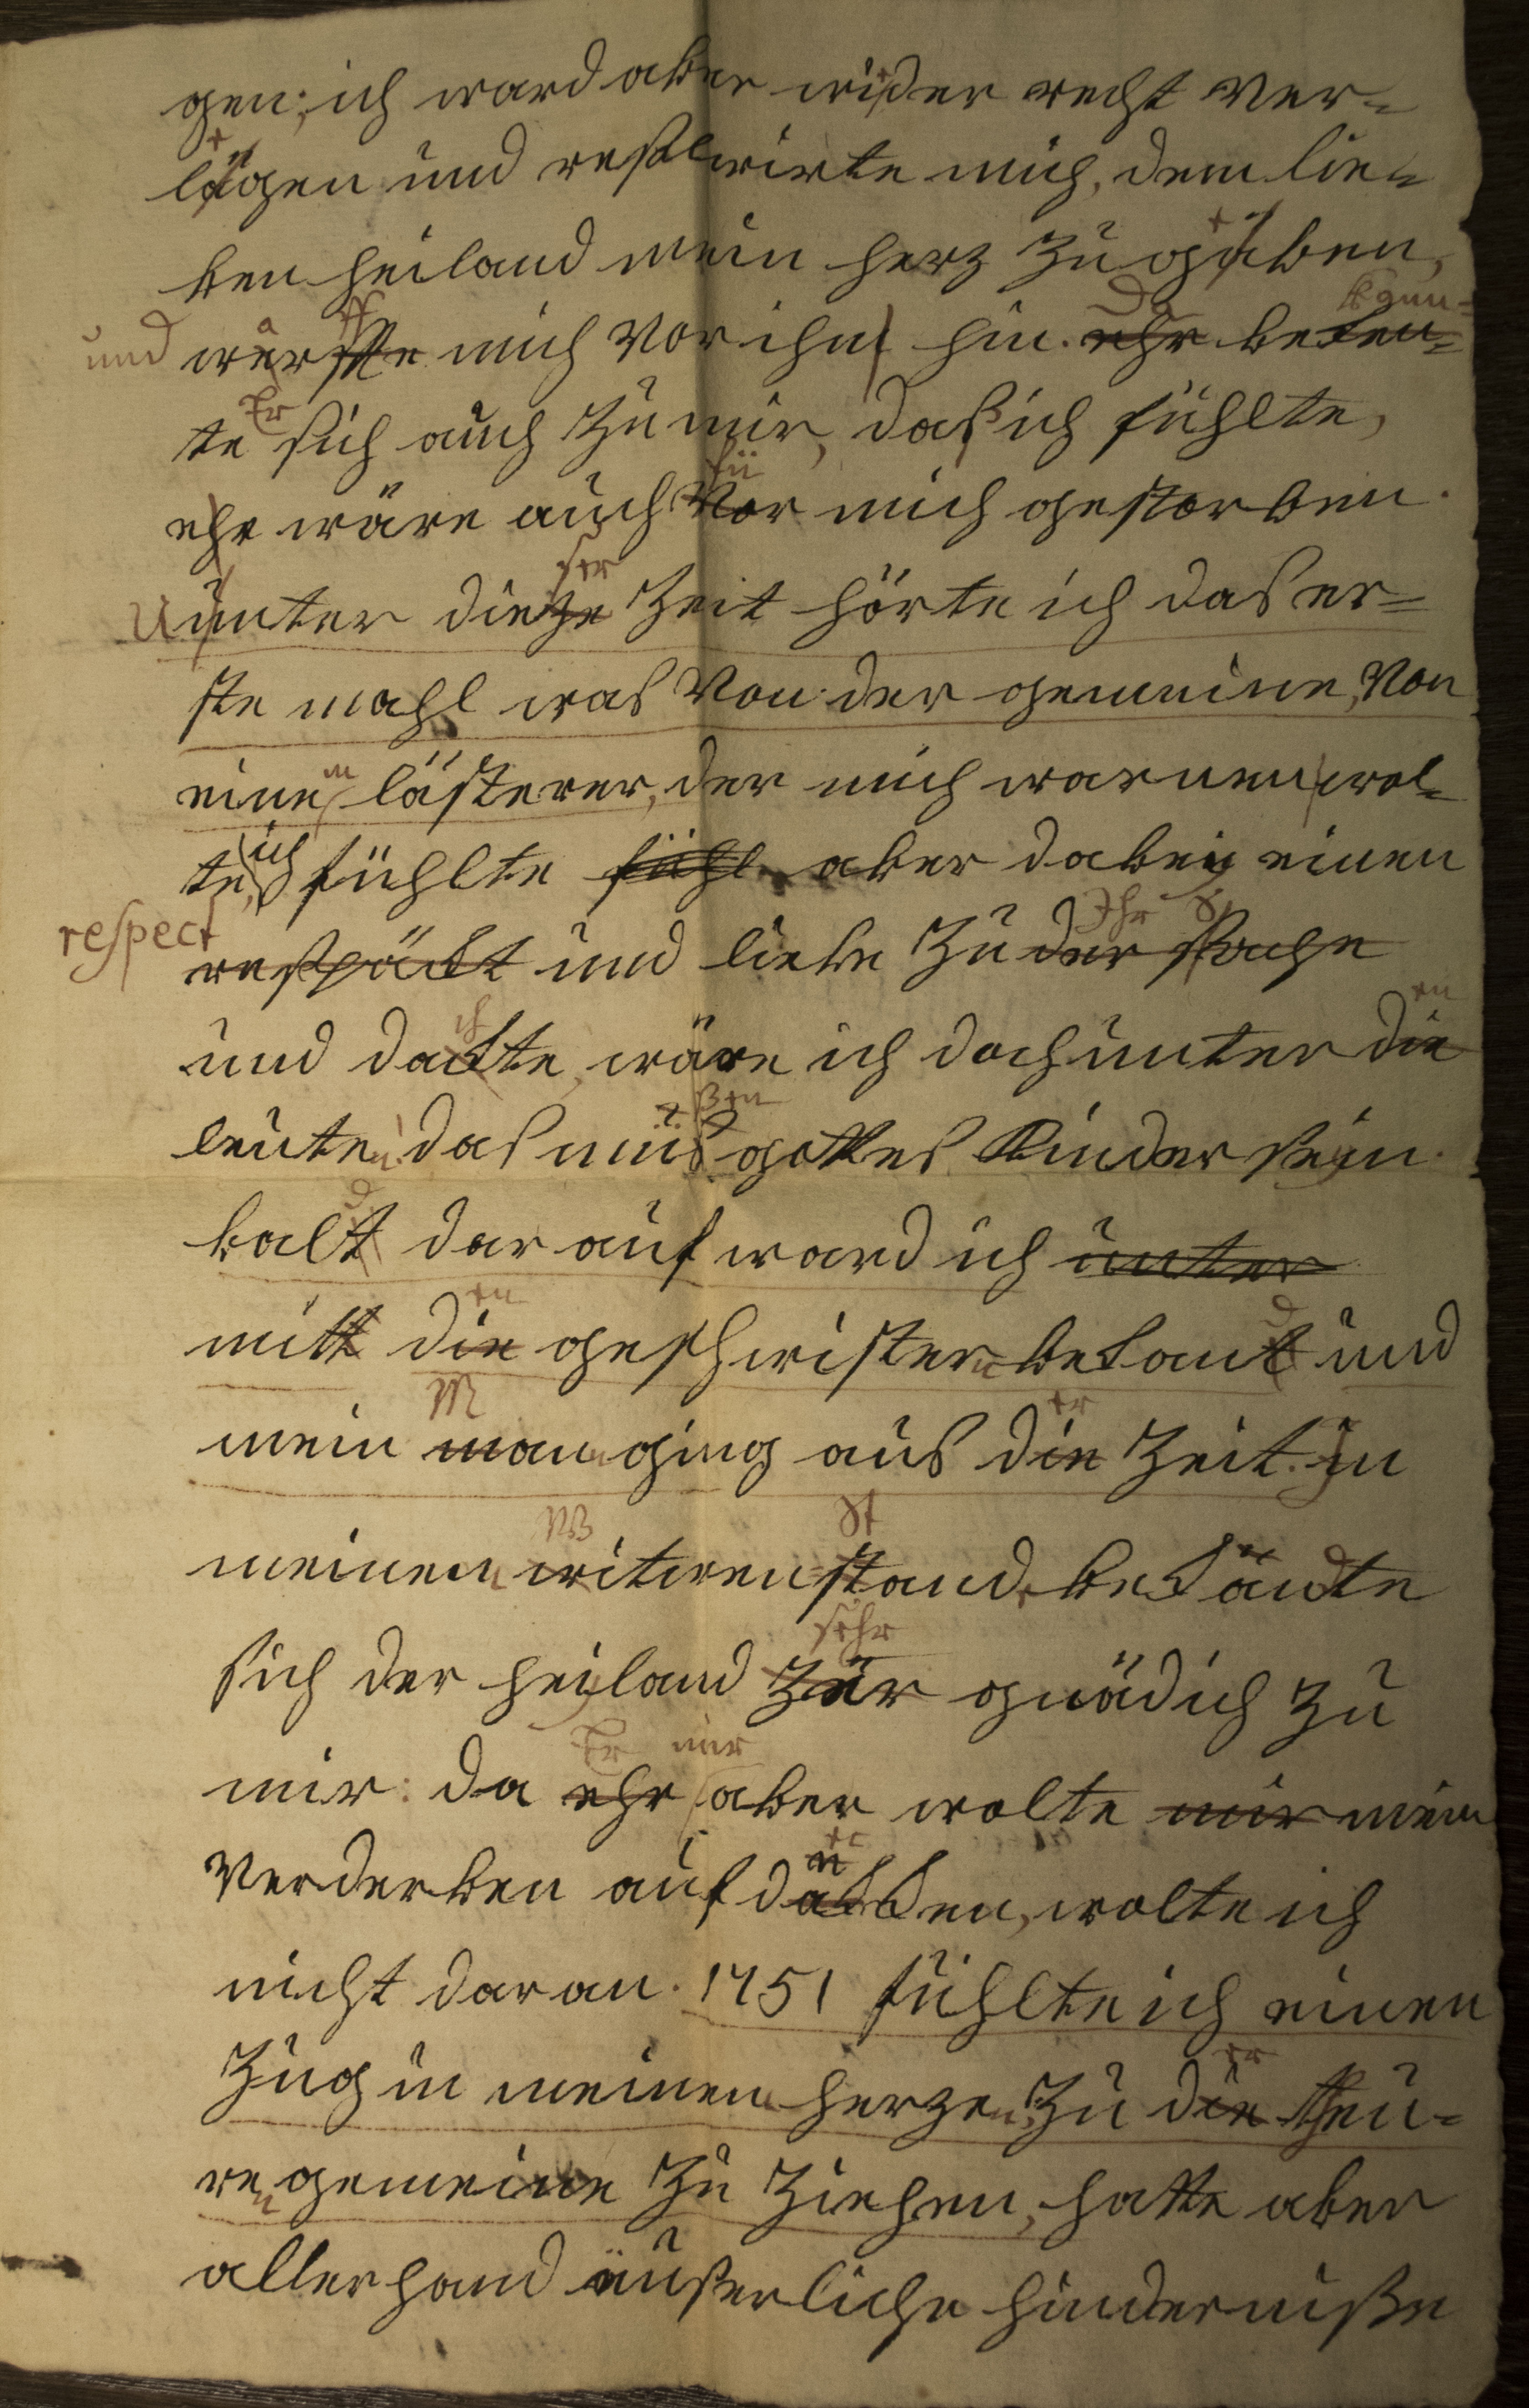 gen; ich ward aber wider recht ver-
lägen und resklwirte mich, dem lie-
ben heiland mein herz zu gäben,
und werffte mich vor ihm hin. ehr beken- Da kann-
te Er sich auch zu mir, daß ich fühlte,
ehr wäre auch vor fü mich gestorben.
Uunter dieze ser Zeit hörte ich das er-
ste mahl was von der gemeine, von
eine m lästerer, der mich warnen wol-
te, ich fühlte fühl aber dabey einen
respect respäckt und liebe zu der sache Ihr S
und dackte ch wäre ich doch unter die en
leuten! das müs ßen gottes Kinder sein.
balt d dar auf ward ich unter
mitt die en geschwistern bekant d und
mein man M ging aus die er Zeit. In
meinen witwen W stand St bekändte
sich der heyland zär sehr gnädich zu
mir: da ehr Er mir aber wolte mir mein
verderben auf däkken, wolte ich
nicht daran. 1751 fühlte ich einen
Zug in meinen herzen, zu die er theu-
ren gemeine zu ziehen, hatte aber
allerhand äußerliche hinderniße